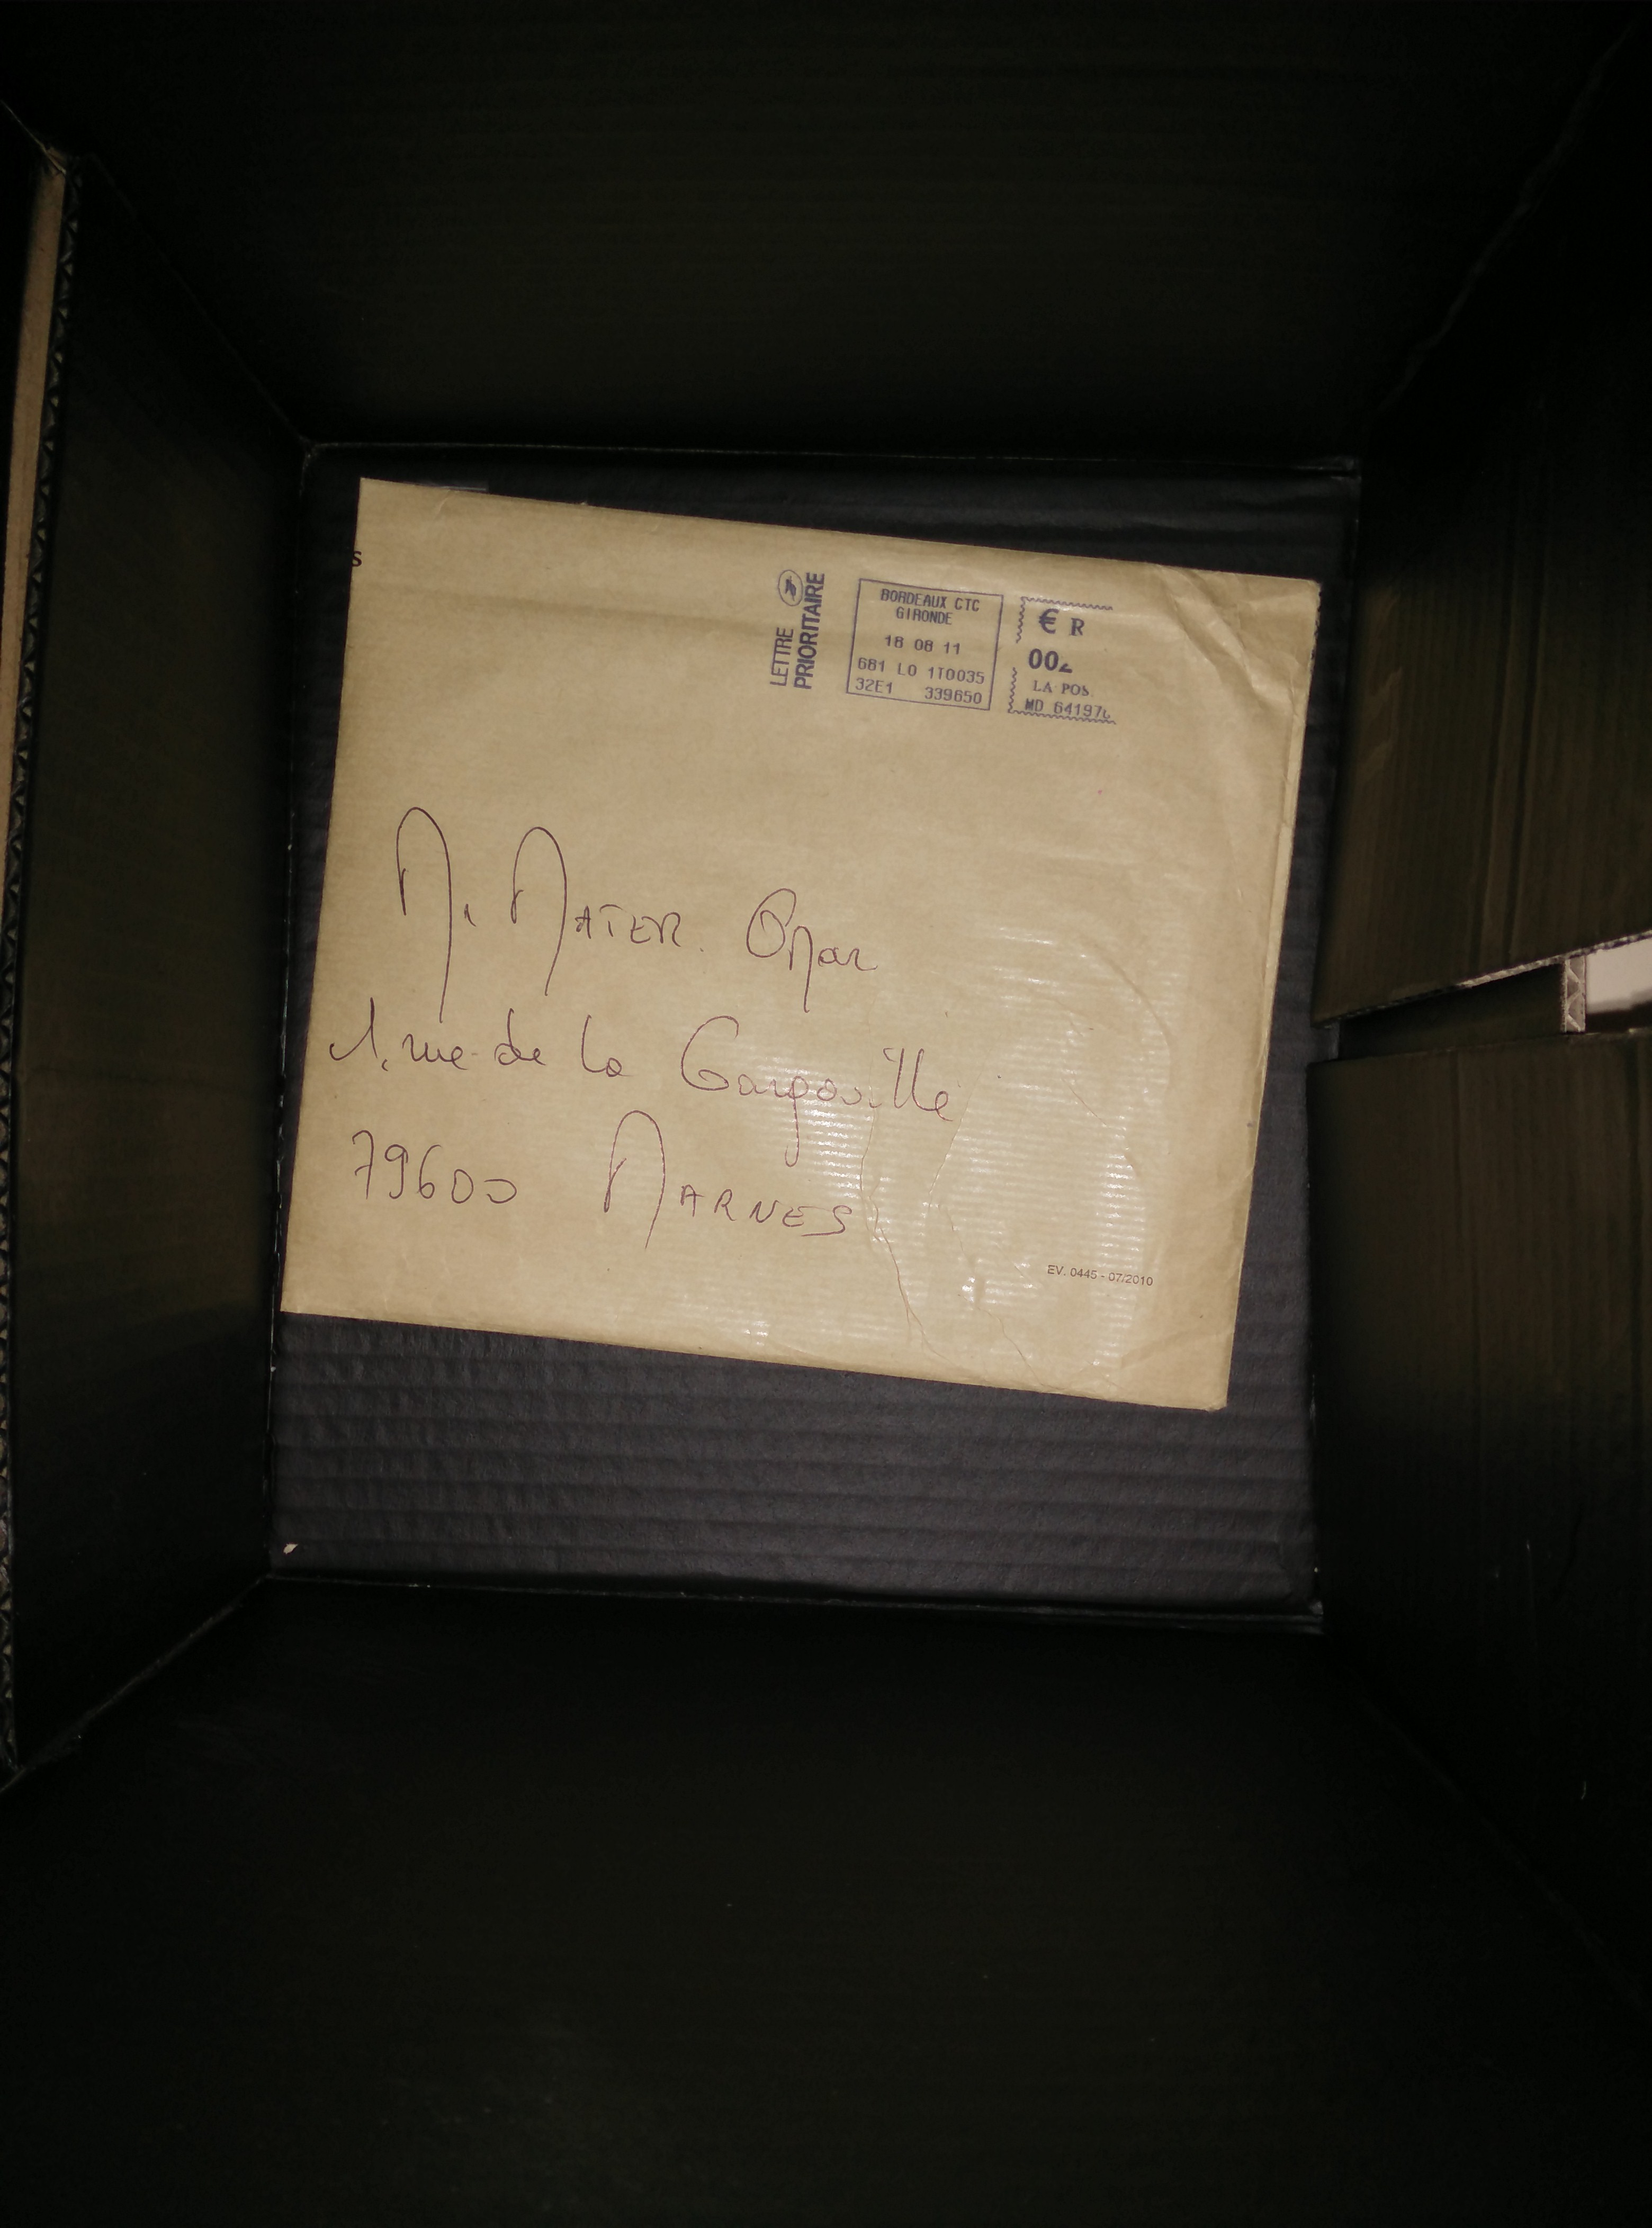 S
LETTRE
PRIORITAIRE
BORDEAUX CTC
GIRONDE
18 08 11
681 L0 1T0035
32E1 339650
€ R
LA POS
MD 64197
M. MATER Omar
1, rue de la Gargouille
79600 MARNES
EV. 0445 - 07/2010